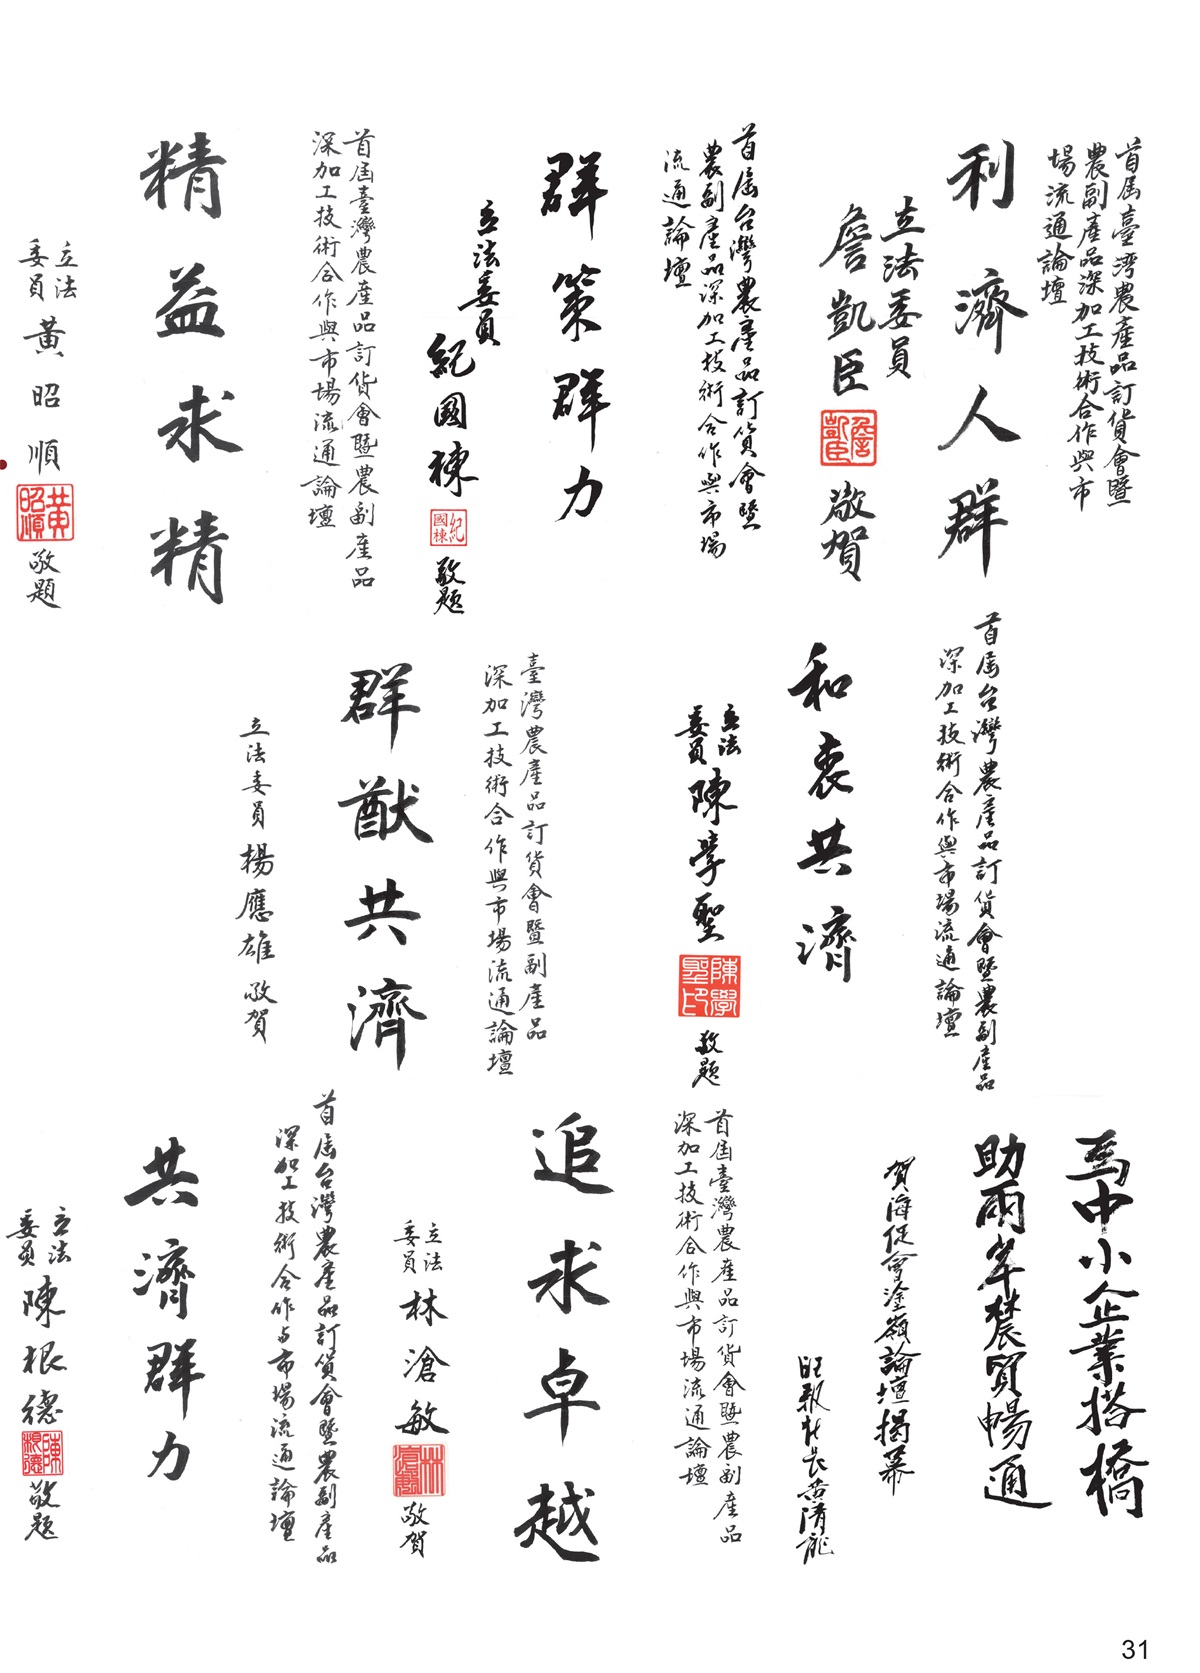 首屆臺灣農產品訂貨會暨
農副產品深加工技術合作與市
場流通論壇
利濟人群
立法委員
詹凱臣
詹凱臣
敬賀
首屆台灣農產品訂貨會暨
農副產品深加工技術合作與市場
流通論壇
群策群力
立法委員
紀國棟
紀國棟
敬題
首屆臺灣農產品訂貨會暨農副產品
深加工技術合作與市場流通論壇
精益求精
立法
委員
黃昭順
黃昭順
敬題
首屆台灣農產品訂貨會暨農副產品
深加工技術合作與市場流通論壇
和衷共濟
立法
委員
陳學聖
陳學聖印
敬題
臺灣農產品訂貨會暨副產品
深加工技術合作與市場流通論壇
群猷共濟
立法委員楊應雄敬賀
為中小企業搭橋
助兩岸農貿暢通
賀海促會塗嶺論壇揭幕
旺報社長黃清龍
首屆臺灣農產品訂貨會暨農副產品
深加工技術合作與市場流通論壇
追求卓越
立法
委員
林滄敏
林滄敏
敬賀
首屆台灣農產品訂貨會暨農副產品
深加工技術合作与市場流通論壇
共濟群力
立法
委員
陳根德
陳根德
敬題
31